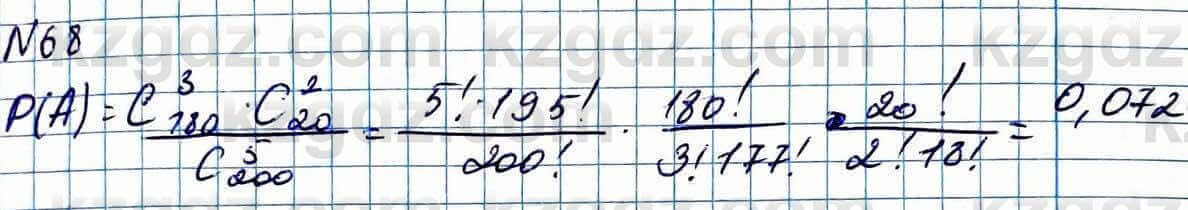 N68
P(A) = C³₁₈₀ · C²₂₀ / C⁵₂₀₀ = 5! · 195! / 200! · 180! / 3! 177! · 20! / 2! 18! = 0,072
kzgdz.com kzgdz.com kzgdz